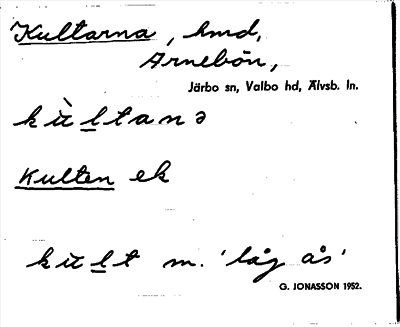 Kultarna, hmd,
Arnebön,
Järbo sn, Valbo hd, Älvsb. ln.
kùl̲tanə
Kulten ek
kul̲t m. 'låg ås'
G. JONASSON 1952.